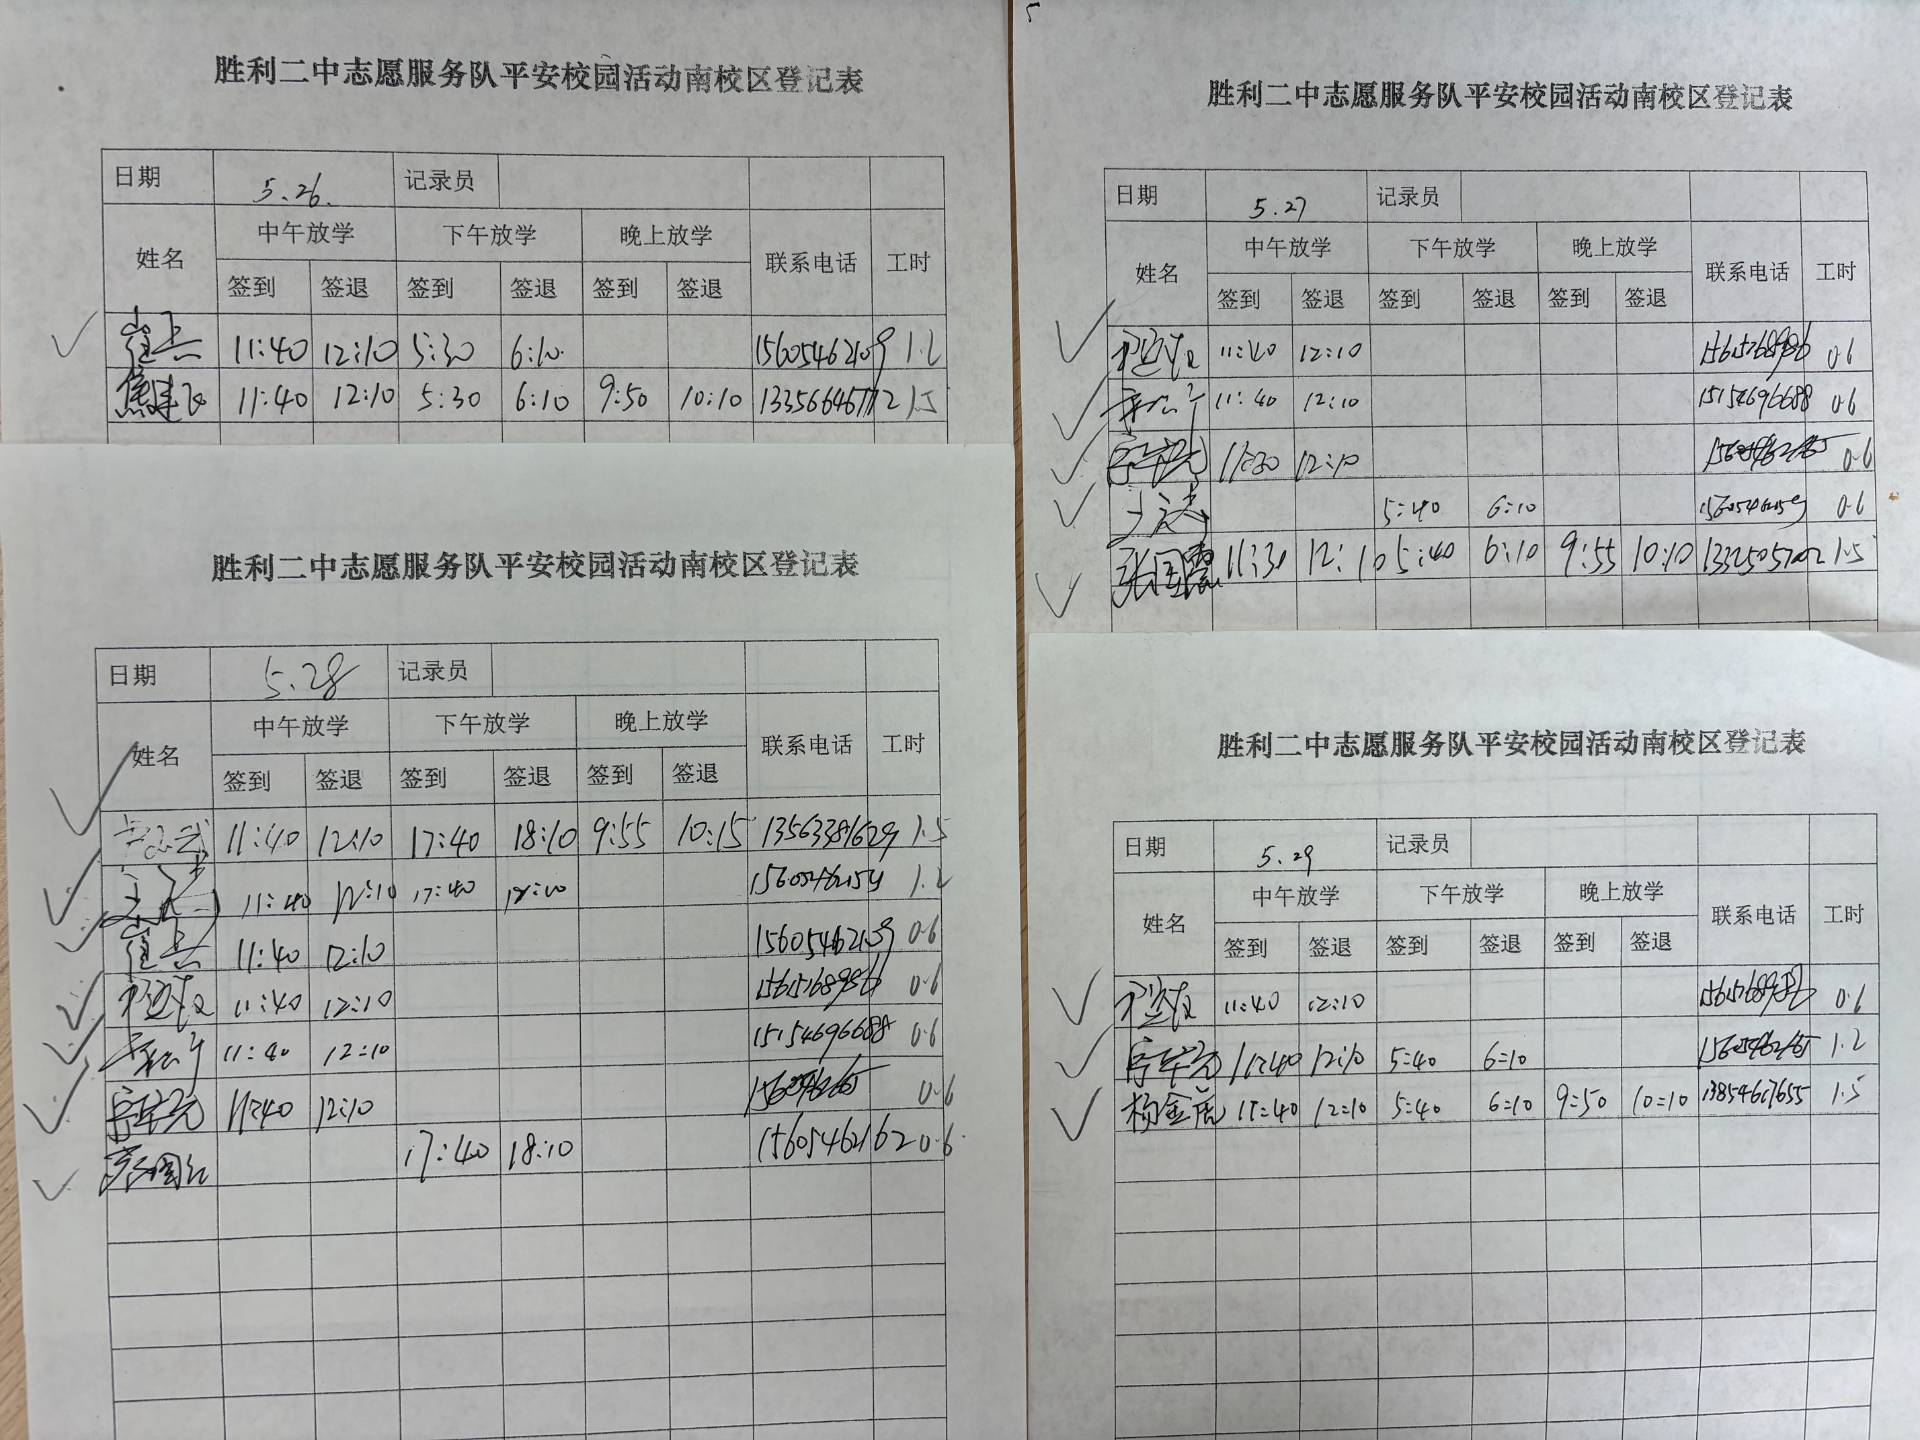 胜利二中志愿服务队平安校园活动南校区登记表
日期 5.26. 记录员
姓名 中午放学 下午放学 晚上放学 联系电话 工时
签到 签退 签到 签退 签到 签退
11:40 12:10 5:30 6:10 15605462109 1.2
11:40 12:10 5:30 6:10 9:50 10:10 1.5
胜利二中志愿服务队平安校园活动南校区登记表
日期 5.27 记录员
姓名 中午放学 下午放学 晚上放学 联系电话 工时
签到 签退 签到 签退 签到 签退
11:40 12:10 0.6
11:40 12:10 15154696688 0.6
11:30 12:10 0.6
5:40 6:10 0.6
张国震 11:30 12:10 5:40 6:10 9:55 10:10 1.5
胜利二中志愿服务队平安校园活动南校区登记表
日期 5.28 记录员
姓名 中午放学 下午放学 晚上放学 联系电话 工时
签到 签退 签到 签退 签到 签退
11:40 12:10 17:40 18:10 9:55 10:15 13563381629 1.5
11:40 12:10 17:40 1.2
11:40 12:10 0.6
11:40 12:10 0.6
11:40 12:10 15154696688 0.6
11:40 12:10 0.6
17:40 18:10 15605462162 0.6
胜利二中志愿服务队平安校园活动南校区登记表
日期 5.29 记录员
姓名 中午放学 下午放学 晚上放学 联系电话 工时
签到 签退 签到 签退 签到 签退
11:40 12:10 0.6
11:40 12:10 5:40 6:10 1.2
杨金虎 11:40 12:10 5:40 6:10 9:50 10:10 13854617655 1.5